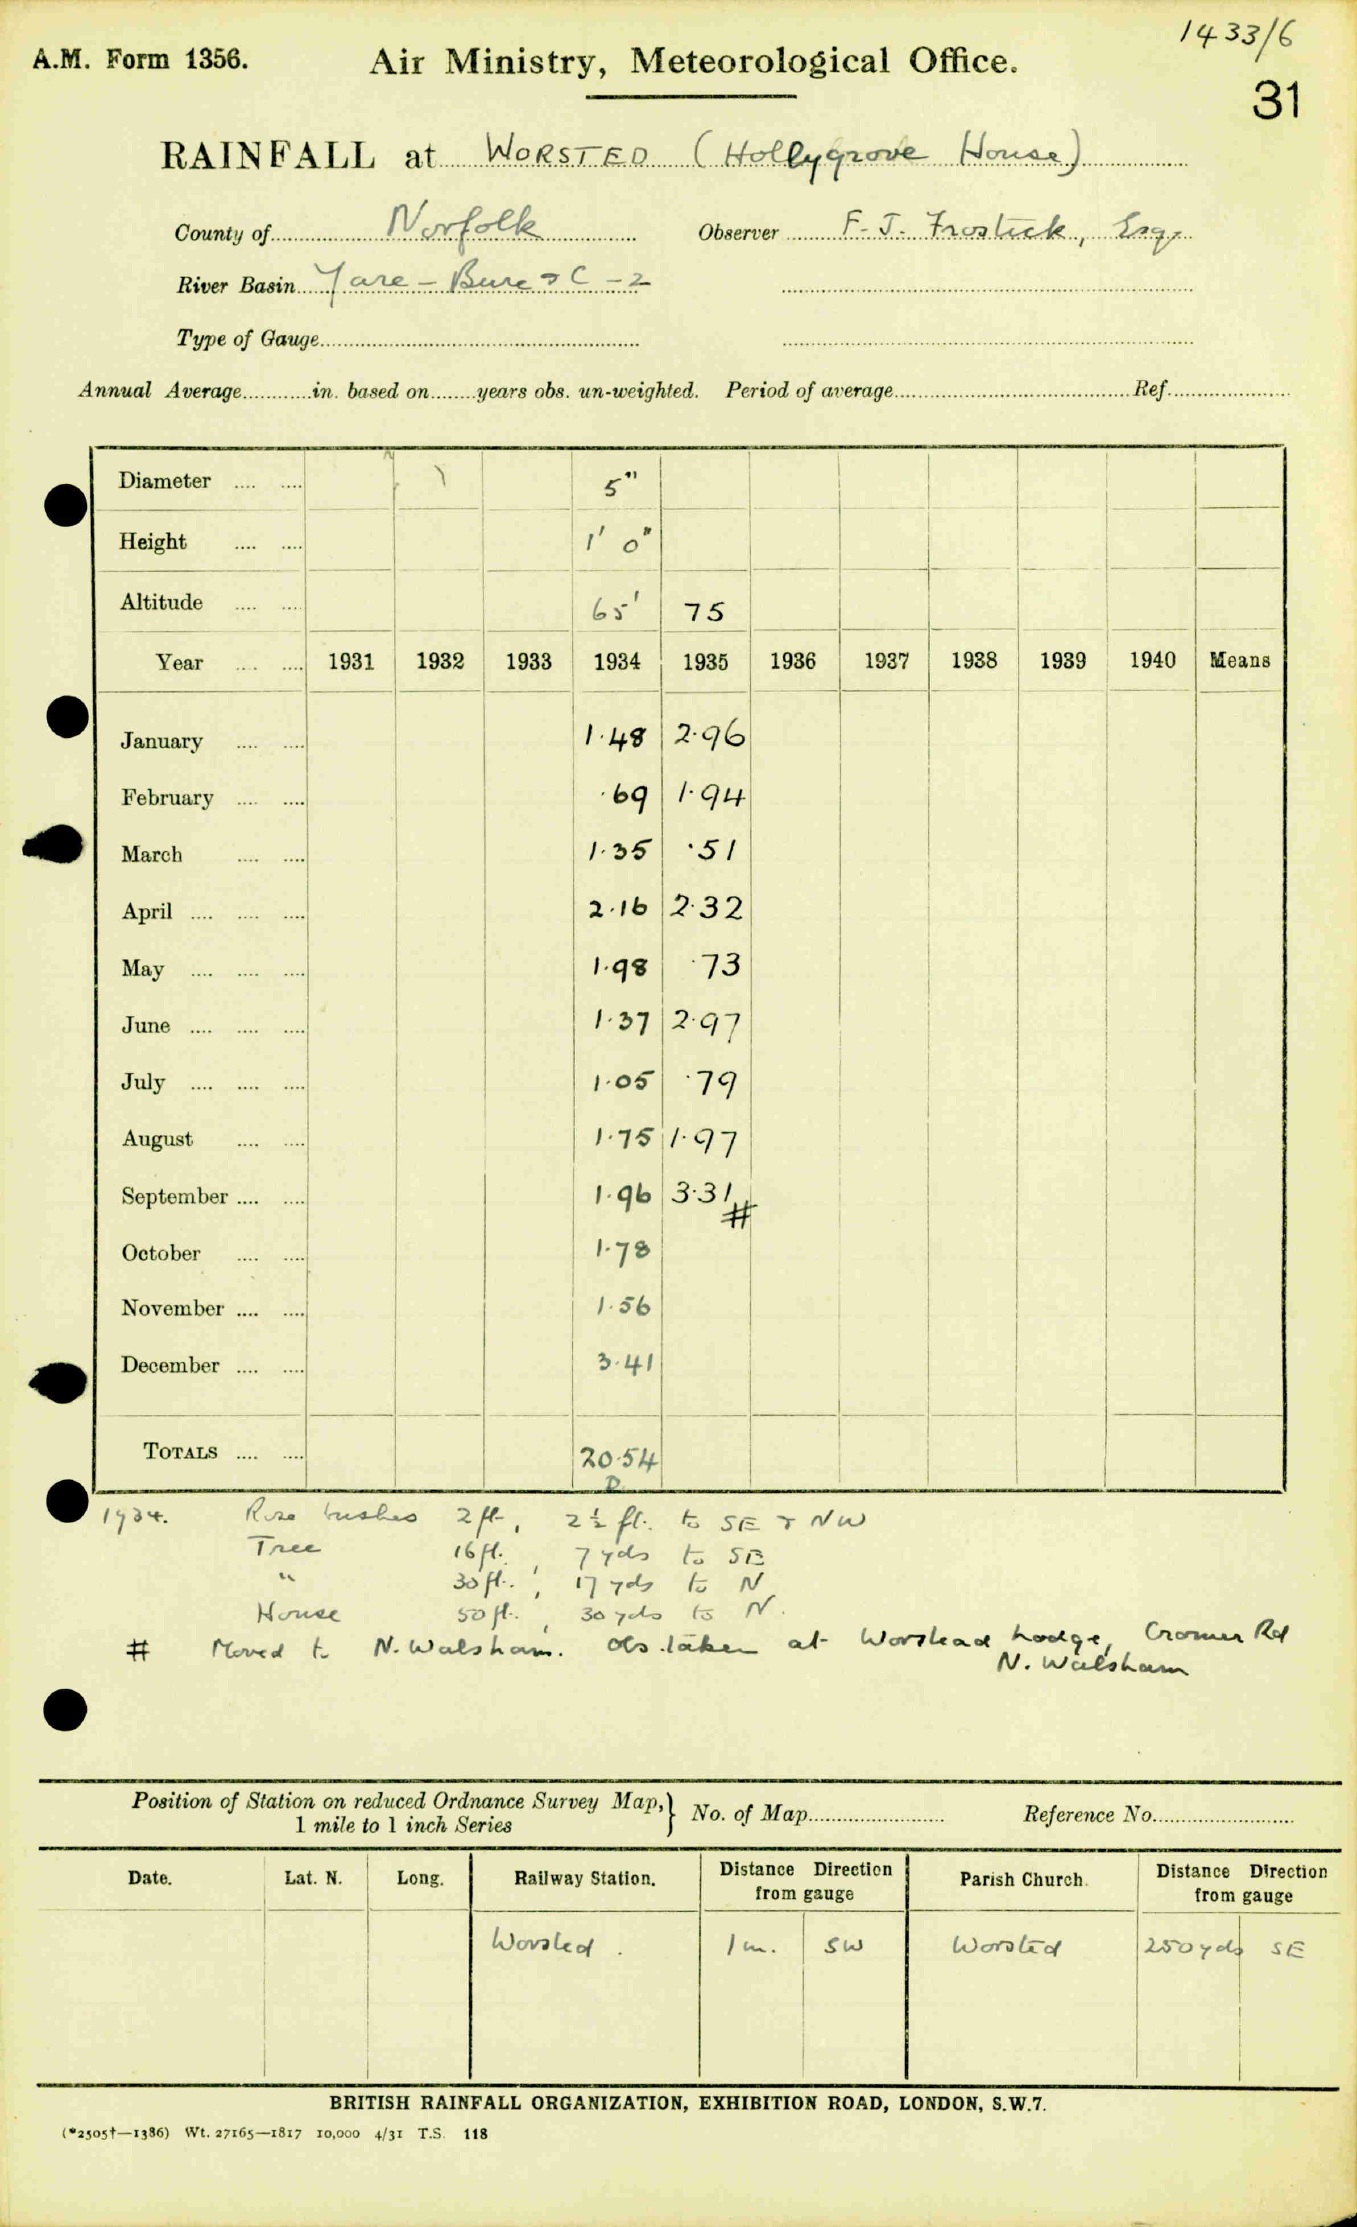 1433/6
A.M. Form 1356. Air Ministry, Meteorological Office.
31
RAINFALL at WORSTED (Hollygrove House)
County of Norfolk Observer F. J. Frostick, Esq.
River Basin Yare - Bure &C - 2
Type of Gauge
Annual Average in. based on years obs. un-weighted. Period of average Ref.
Diameter 5"
Height 1' 0"
Altitude 65' 75
Year 1931 1932 1933 1934 1935 1936 1937 1938 1939 1940 Means
January 1.48 2.96
February .69 1.94
March 1.35 .51
April 2.16 2.32
May 1.98 .73
June 1.37 2.97
July 1.05 .79
August 1.75 1.97
September 1.96 3.31 #
October 1.78
November 1.56
December 3.41
TOTALS 20.54
D
1934. Rose bushes 2 ft, 2½ ft. to SE & NW
Tree 16 ft., 7 yds to SE
" 30 ft., 17 yds to N
House 50 ft., 30 yds to N.
# Moved to N. Walsham. Obs. taken at Worstead Lodge, Cromer Rd
N. Walsham
Position of Station on reduced Ordnance Survey Map, } No. of Map Reference No.
1 mile to 1 inch Series
Date. Lat. N. Long. Railway Station. Distance Direction from gauge Parish Church. Distance Direction from gauge
Worsted. 1 m. SW Worsted 250 yds SE
BRITISH RAINFALL ORGANIZATION, EXHIBITION ROAD, LONDON, S.W.7.
(*2505†—1386) Wt. 27165—1817 10,000 4/31 T.S. 118